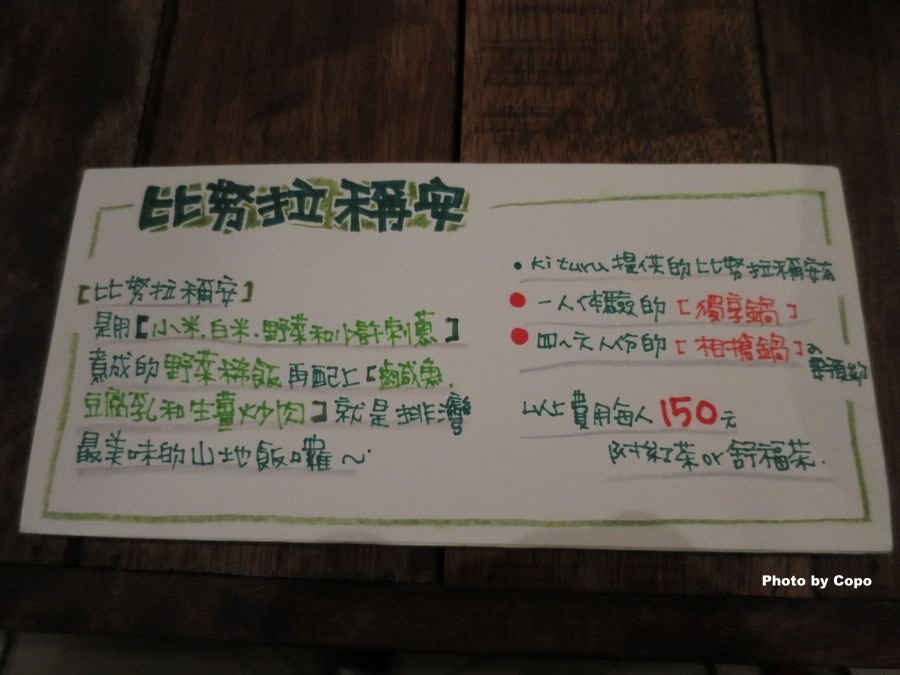 比努拉稱安
【比努拉稱安】
是用【小米.白米.野菜和少許刺蔥】
煮成的野菜稀飯再配上【鹹魚.
豆腐乳和生薑炒肉】就是排灣
最美味的山地飯囉～.
•kituru提供的比努拉稱安有
●一人体驗的【獨享鍋】
●四~六人份的【相搶鍋】
要預約
以上費用每人150元
附紅茶or舒福茶.
Photo by Copo